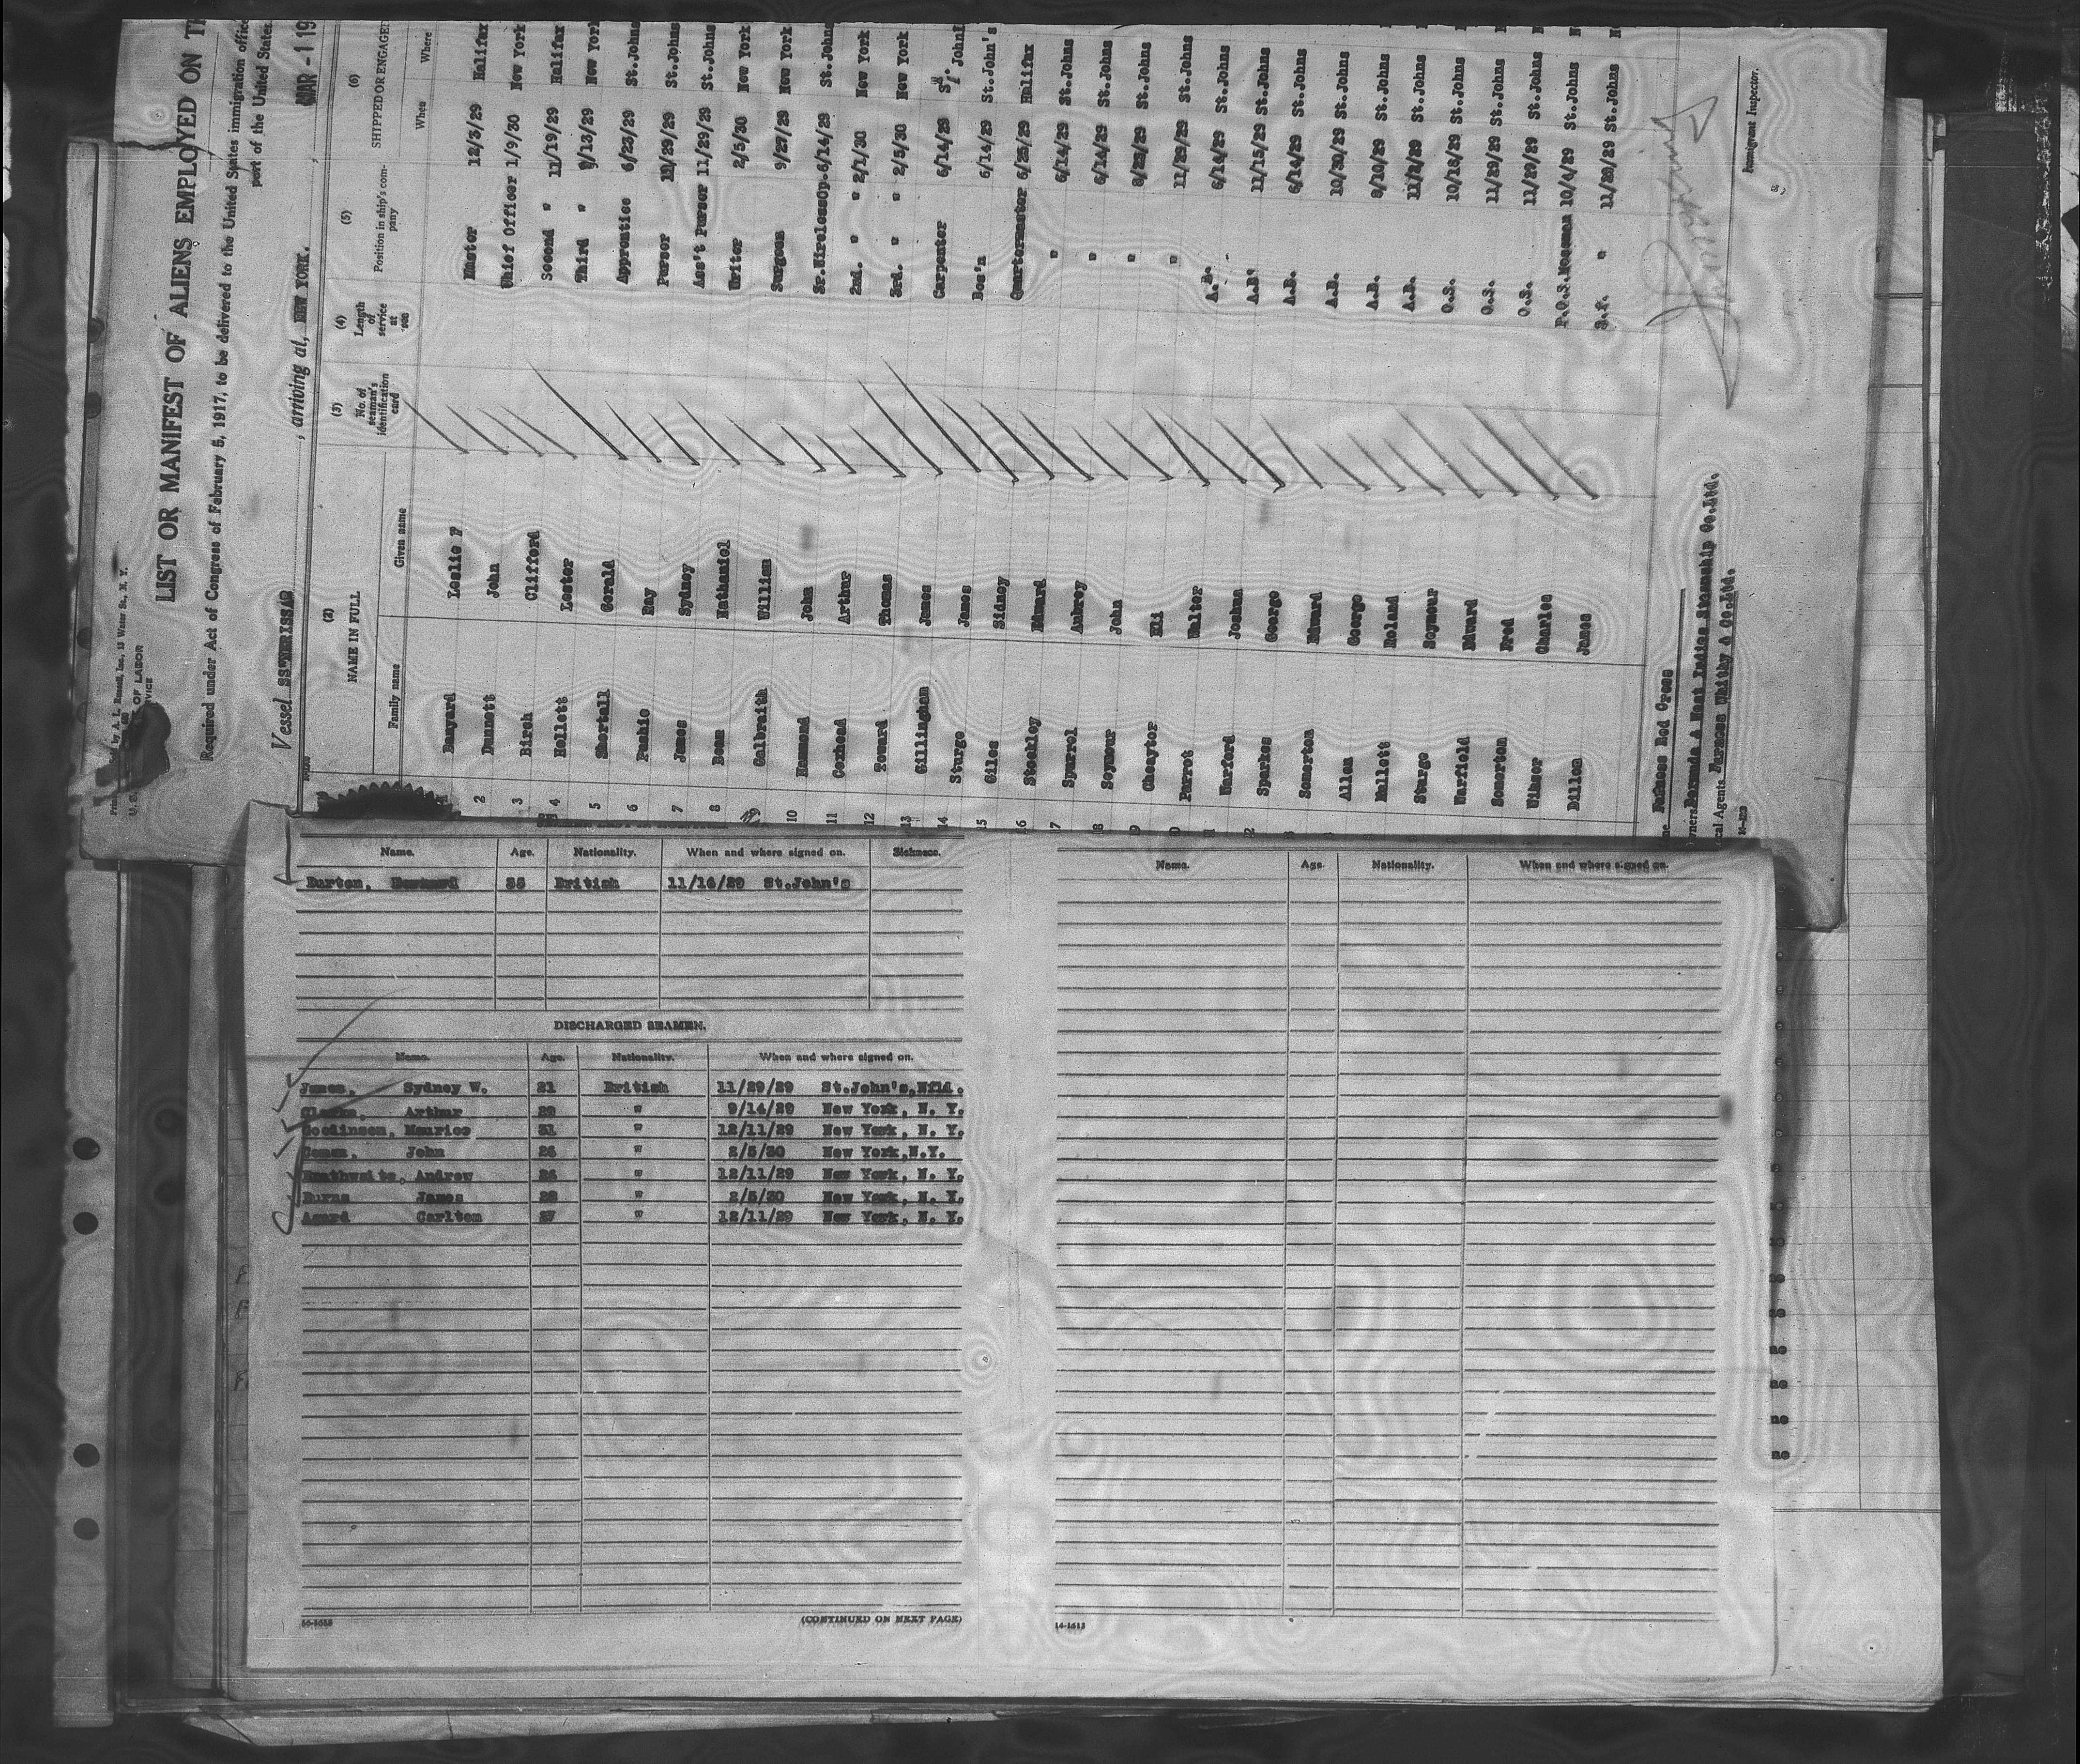 LIST OR MANIFEST OF ALIENS EMPLOYED ON
Required under Act of Congress of February 5, 1917, to be delivered to the United States immigration
port of the United States
OF LABOR
Vessel SS"NERISSA" , arriving at, NEW YORK. , MAR -1 19
(2) (3) (4) (5) (6)
NAME IN FULL No. of seaman's identification card Length of service at sea Position in ship's company SHIPPED OR ENGAGED
Family name Given name When Where
Leslie F Master 12/3/29 Halifax
2 Dunnett John Chief Officer 1/9/30 New York
3 Birch Clifford Second " 11/19/29 Halifax
4 Hollett Lester Third " 9/13/29 New York
5 Shortall Gerald Apprentice 6/23/29 St.Johns
6 Ray Purser St.Johns
7 James Sydney Ass't Purser 11/29/29 St.Johns
8 Bean Nathaniel Writer 2/5/30 New York
9 Galbraith William Surgeon 9/27/29 New York
10 Hammond John Sr.WirelessOp. 6/14/29 St.Johns
11 Coxhead Arthur 2nd. " " 2/1/30 New York
12 Toward Thomas 3rd. " " 2/5/30 New York
13 Gillingham James Carpenter 6/14/29 St. John
14 Sturge James Bos'n 6/14/29 St.John's
15 Giles Sidney Quartermaster 6/25/29 Halifax
16 Stockley Edward " 6/14/29 St.Johns
17 Spurrel Aubrey " 6/14/29 St.Johns
Seymour John " 8/22/29 St.Johns
Cheaytor Eli " 11/29/29 St.Johns
Parrot Walter A.B. 6/14/29 St.Johns
Warford Joshua A.B. 11/15/29 St.Johns
Sparkes George A.B. 6/14/29 St.Johns
Somerton Edward A.B. 10/20/29 St.Johns
Allen George A.B. 8/10/29 St.Johns
Mallett Roland A.B. St.Johns
Sturge Seymour O.S. 10/18/29 St.Johns
Warfield Edward O.S. 11/29/29 St.Johns
Somerton Fred O.S. 11/29/29 St.Johns
Charles P.O.S.Messman 10/4/29 St.Johns
Dillon James " 11/29/29 St.Johns
Furness Red Cross
Bermuda & West Indies Steamship Co.Ltd.
Agents Furness Whithy & Co.Ltd.
Immigrant Inspector.
Name. Age. Nationality. When and where signed on. Sickness.
Burton, 35 British 11/16/29 St.John's
DISCHARGED SEAMEN.
Name. Age. Nationality. When and where signed on.
James, Sydney W. 21 British 11/29/29 St.John's,Nfld.
Arthur " 9/14/29 New York, N. Y.
Maurice 31 " 12/11/29 New York, N. Y.
John 26 " 2/5/30 New York,N.Y.
Andrew 26 " 12/11/29 New York, N. Y.
Burns James 28 " 2/5/30 New York, N. Y.
Carlton 27 " 12/11/29 New York, N. Y.
(CONTINUED ON NEXT PAGE)
Name. Age. Nationality. When and where signed on.
14-1613